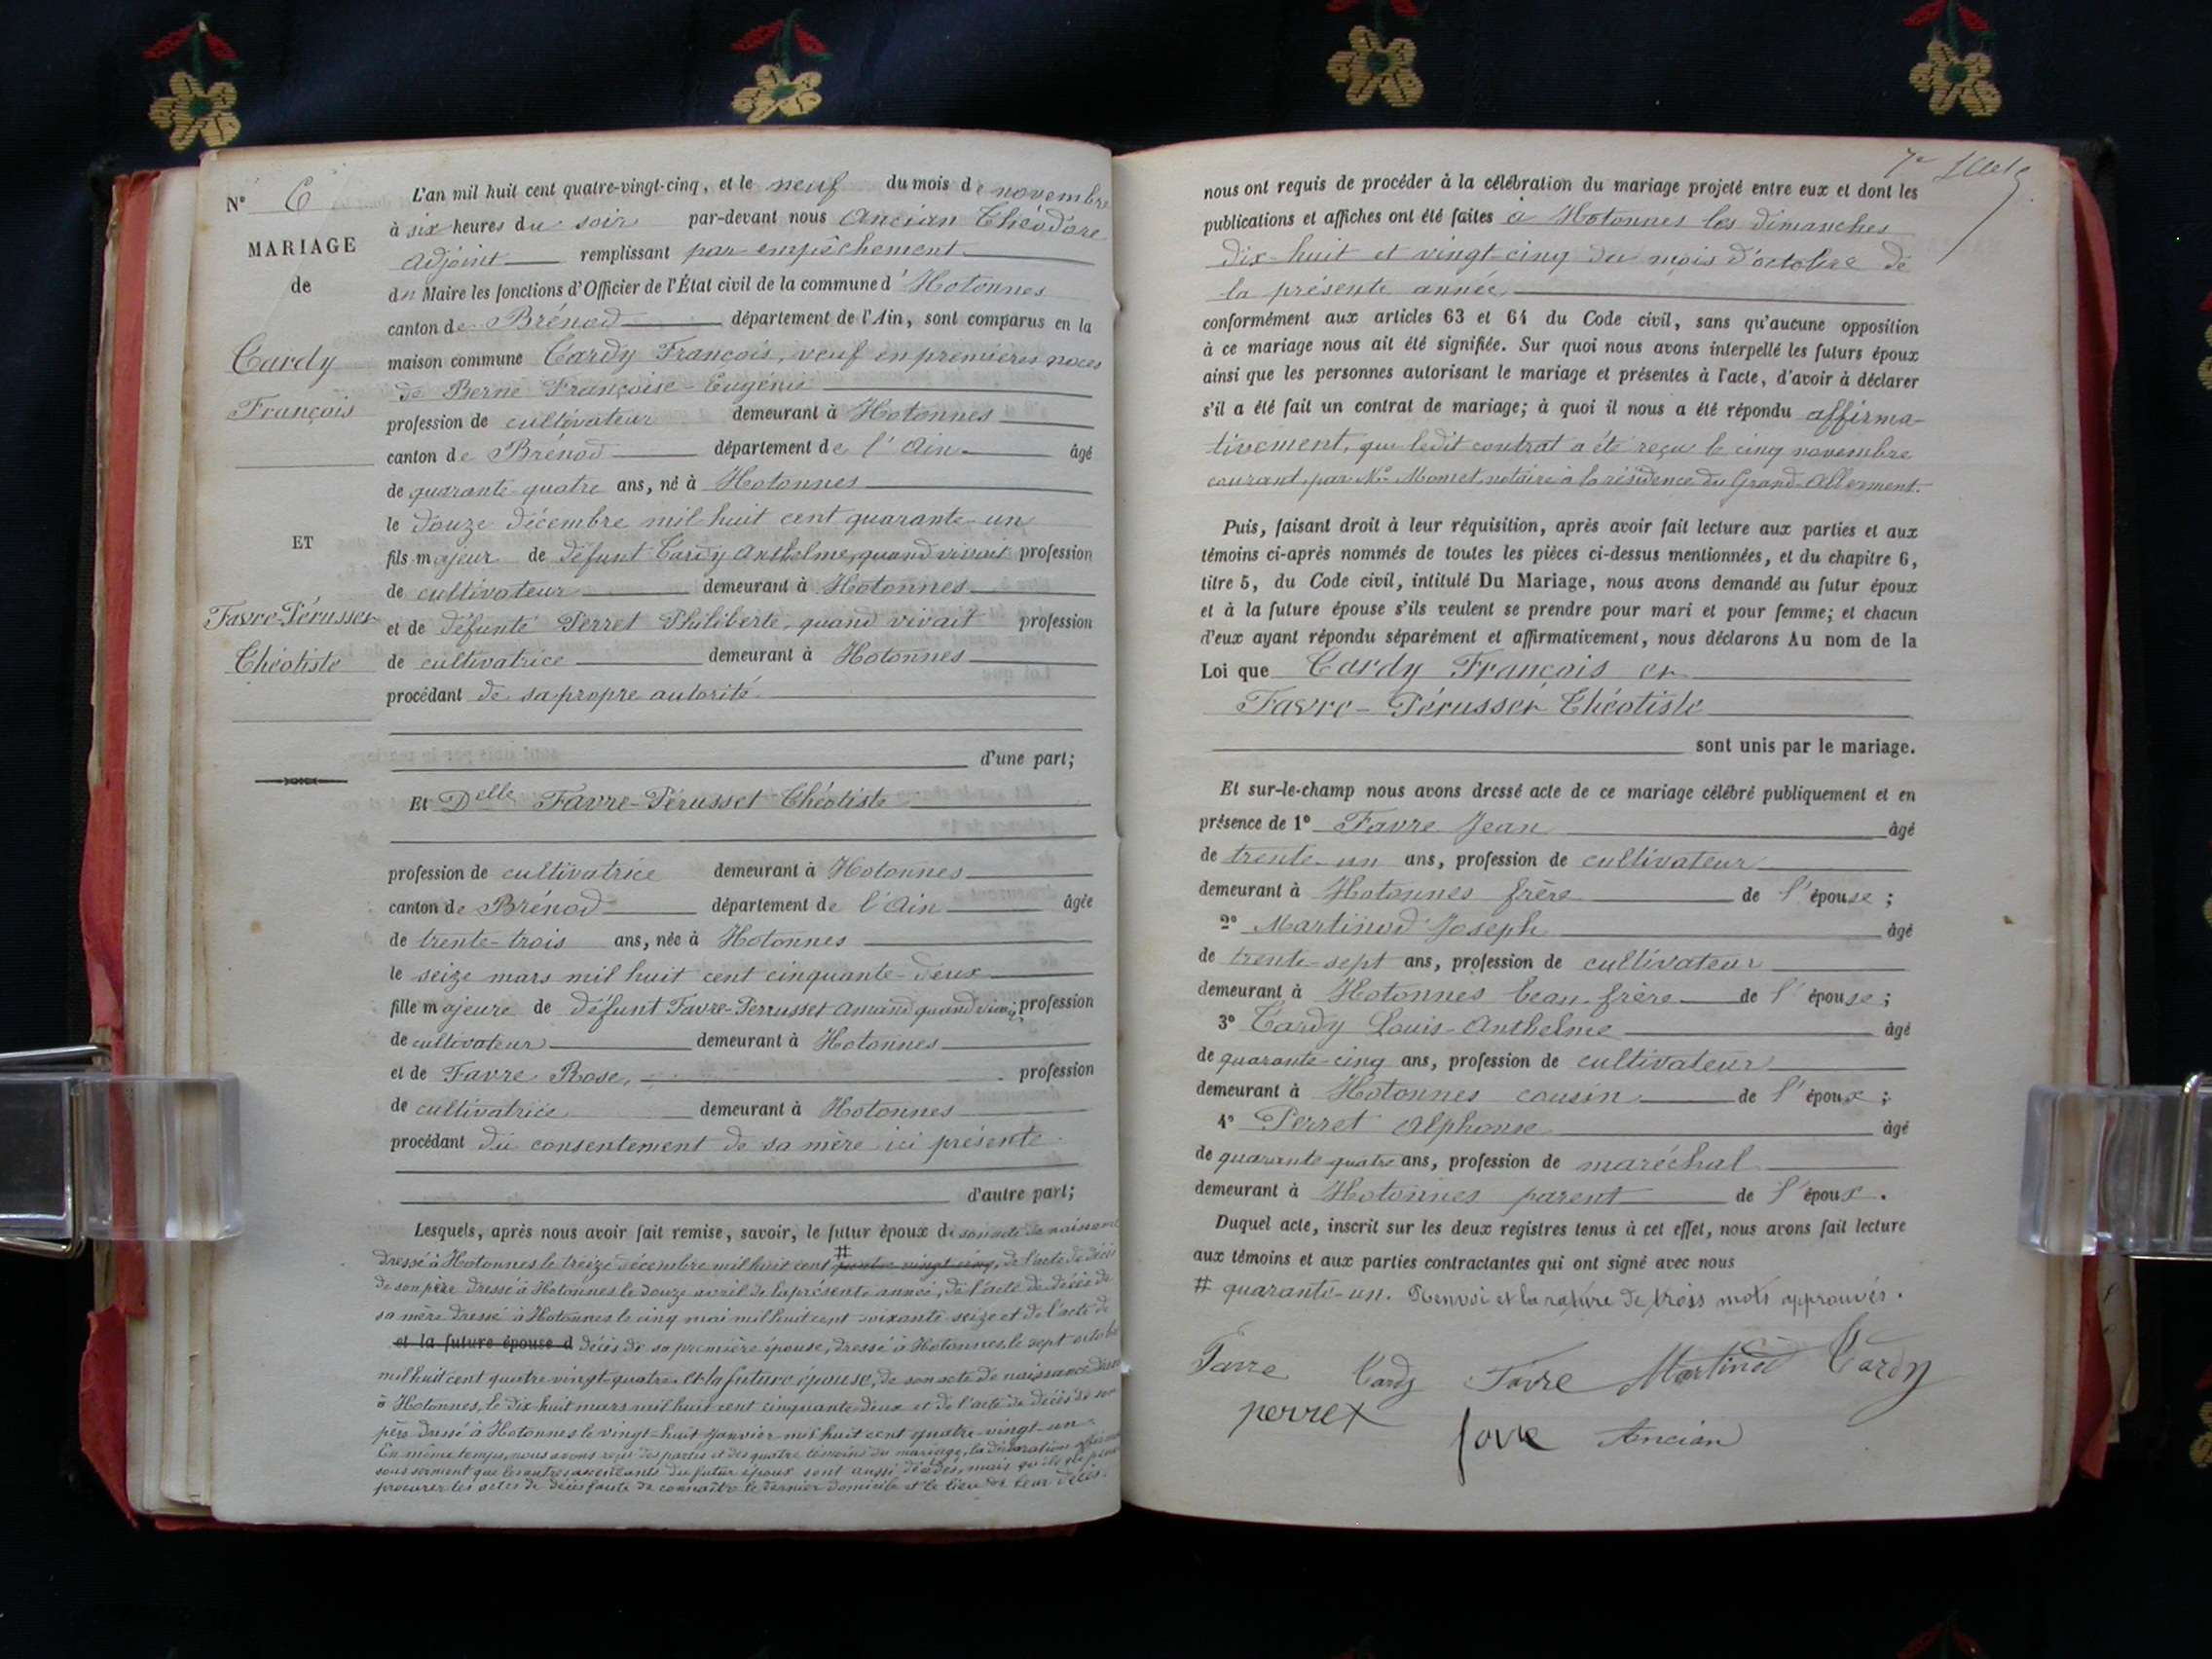 N° 6
MARIAGE
de
Cardy
François
ET
Favre-Pérusset
Théotiste
L'an mil huit cent quatre-vingt-cinq, et le neuf du mois de novembre
à six heures du soir par-devant nous Ancian Théodore
Adjoint remplissant par empêchement
du Maire les fonctions d'Officier de l'État civil de la commune d'Hotonnes
canton de Brénod département de l'Ain, sont comparus en la
maison commune Cardy François, veuf en premières noces
de Berne Françoise-Eugénie
profession de cultivateur demeurant à Hotonnes
canton de Brénod département de l'Ain âgé
de quarante-quatre ans, né à Hotonnes
le douze décembre mil huit cent quarante-un
fils majeur de défunt Cardy Anthelme, quand vivait profession
de cultivateur demeurant à Hotonnes
et de défunte Perret Philiberte, quand vivait profession
de cultivatrice demeurant à Hotonnes
procédant de sa propre autorité
d'une part;
Et Delle Favre-Pérusset Théotiste
profession de cultivatrice demeurant à Hotonnes
canton de Brénod département de l'Ain âgée
de trente-trois ans, née à Hotonnes
le seize mars mil huit cent cinquante-deux
fille majeure de défunt Favre-Perrusset Amand quand vivait profession
de cultivateur demeurant à Hotonnes
et de Favre Rose, profession
de cultivatrice demeurant à Hotonnes
procédant du consentement de sa mère ici présente
d'autre part;
Lesquels, après nous avoir fait remise, savoir, le futur époux de son acte de naissance
dressé à Hotonnes le treize décembre mil huit cent # quatre vingt cinq, de l'acte de décès
de son père dressé à Hotonnes le douze avril de la présente année, de l'acte de décès de
sa mère dressé à Hotonnes le cinq mai mil huit cent soixante seize et de l'acte de
et la future épouse d décès de sa première épouse, dressé à Hotonnes le sept octobre
mil huit cent quatre vingt-quatre. Et la future épouse, de son acte de naissance dressé
à Hotonnes, le dix-huit mars mil huit cent cinquante deux et de l'acte de décès de son
père dressé à Hotonnes le vingt-huit janvier mil huit cent quatre-vingt-un
En même temps, nous avons reçu des parties et des quatre témoins du mariage, la déclaration
sous serment que les autres ascendants du futur époux sont aussi décédés, mais qu'ils ne
procurer les actes de décès faute de connaître le dernier domicile et le lieu de leur décès.
nous ont requis de procéder à la célébration du mariage projeté entre eux et dont les
publications et affiches ont été faites à Hotonnes les dimanches
dix-huit et vingt-cinq du mois d'octobre de
la présente année
conformément aux articles 63 et 64 du Code civil, sans qu'aucune opposition
à ce mariage nous ait été signifiée. Sur quoi nous avons interpellé les futurs époux
ainsi que les personnes autorisant le mariage et présentes à l'acte, d'avoir à déclarer
s'il a été fait un contrat de mariage; à quoi il nous a été répondu affirma-
tivement, que ledit contrat a été reçu le cinq novembre
courant par Me Momet, notaire à la résidence du Grand-Abergement.
Puis, faisant droit à leur réquisition, après avoir fait lecture aux parties et aux
témoins ci-après nommés de toutes les pièces ci-dessus mentionnées, et du chapitre 6,
titre 5, du Code civil, intitulé Du Mariage, nous avons demandé au futur époux
et à la future épouse s'ils veulent se prendre pour mari et pour femme; et chacun
d'eux ayant répondu séparément et affirmativement, nous déclarons Au nom de la
Loi que Cardy François et
Favre-Pérusset Théotiste
sont unis par le mariage.
Et sur-le-champ nous avons dressé acte de ce mariage célébré publiquement et en
présence de 1° Favre Jean âgé
de trente-un ans, profession de cultivateur
demeurant à Hotonnes frère de l'épouse;
2° Martinod Joseph âgé
de trente-sept ans, profession de cultivateur
demeurant à Hotonnes beau-frère de l'épouse;
3° Cardy Louis-Anthelme âgé
de quarante-cinq ans, profession de cultivateur
demeurant à Hotonnes cousin de l'époux;
4° Perret Alphonse âgé
de quarante quatre ans, profession de maréchal
demeurant à Hotonnes parent de l'époux.
Duquel acte, inscrit sur les deux registres tenus à cet effet, nous avons fait lecture
aux témoins et aux parties contractantes qui ont signé avec nous
# quarante-un. Renvoi et la rature de trois mots approuvés.
Favre Cardy Favre Martinod Cardy
perret favre Ancian